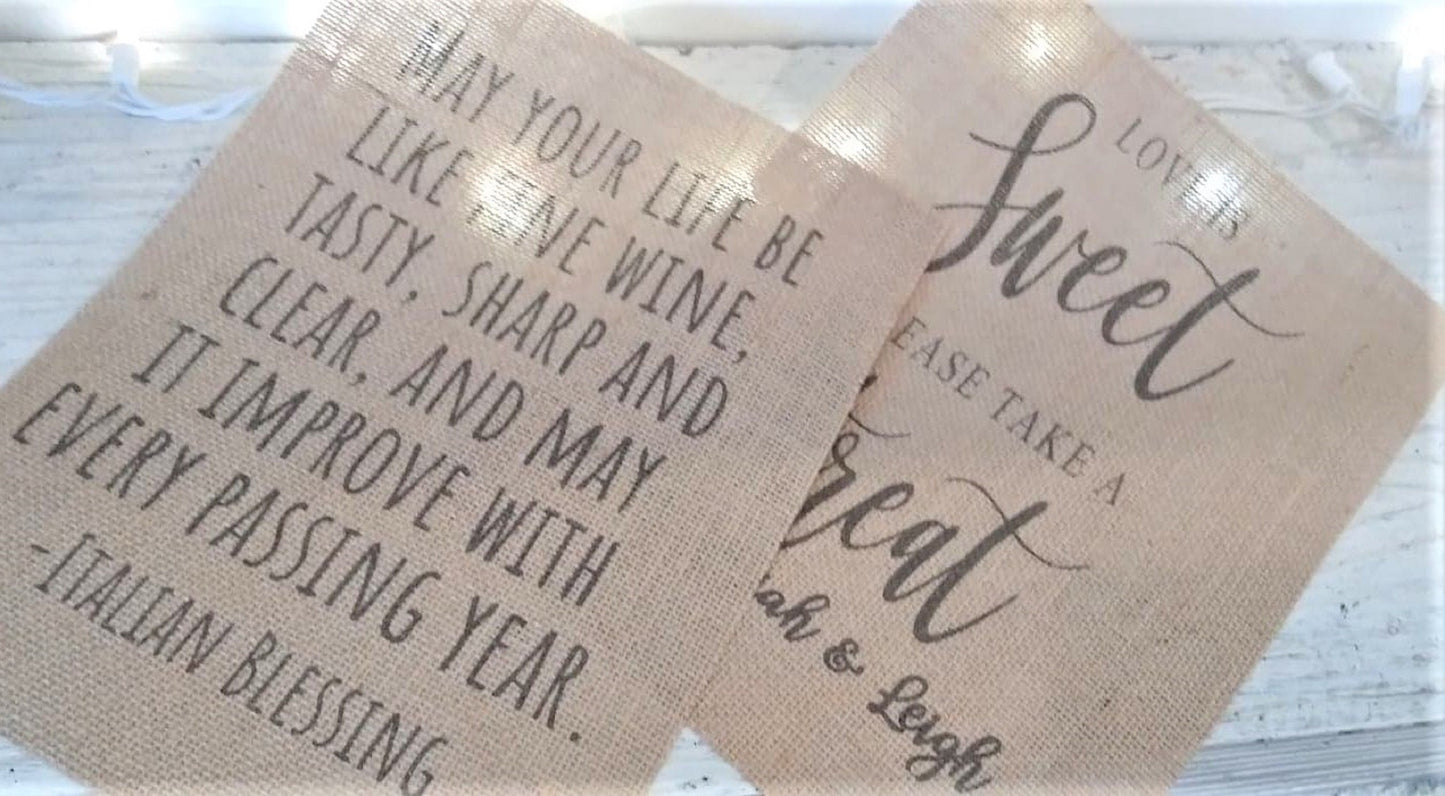 MAY YOUR LIFE BE
LIKE FINE WINE,
TASTY, SHARP AND
CLEAR, AND MAY
IT IMPROVE WITH
EVERY PASSING YEAR.
-ITALIAN BLESSING
LOVE IS
Sweet
EASE TAKE A
reat
ah & Leigh